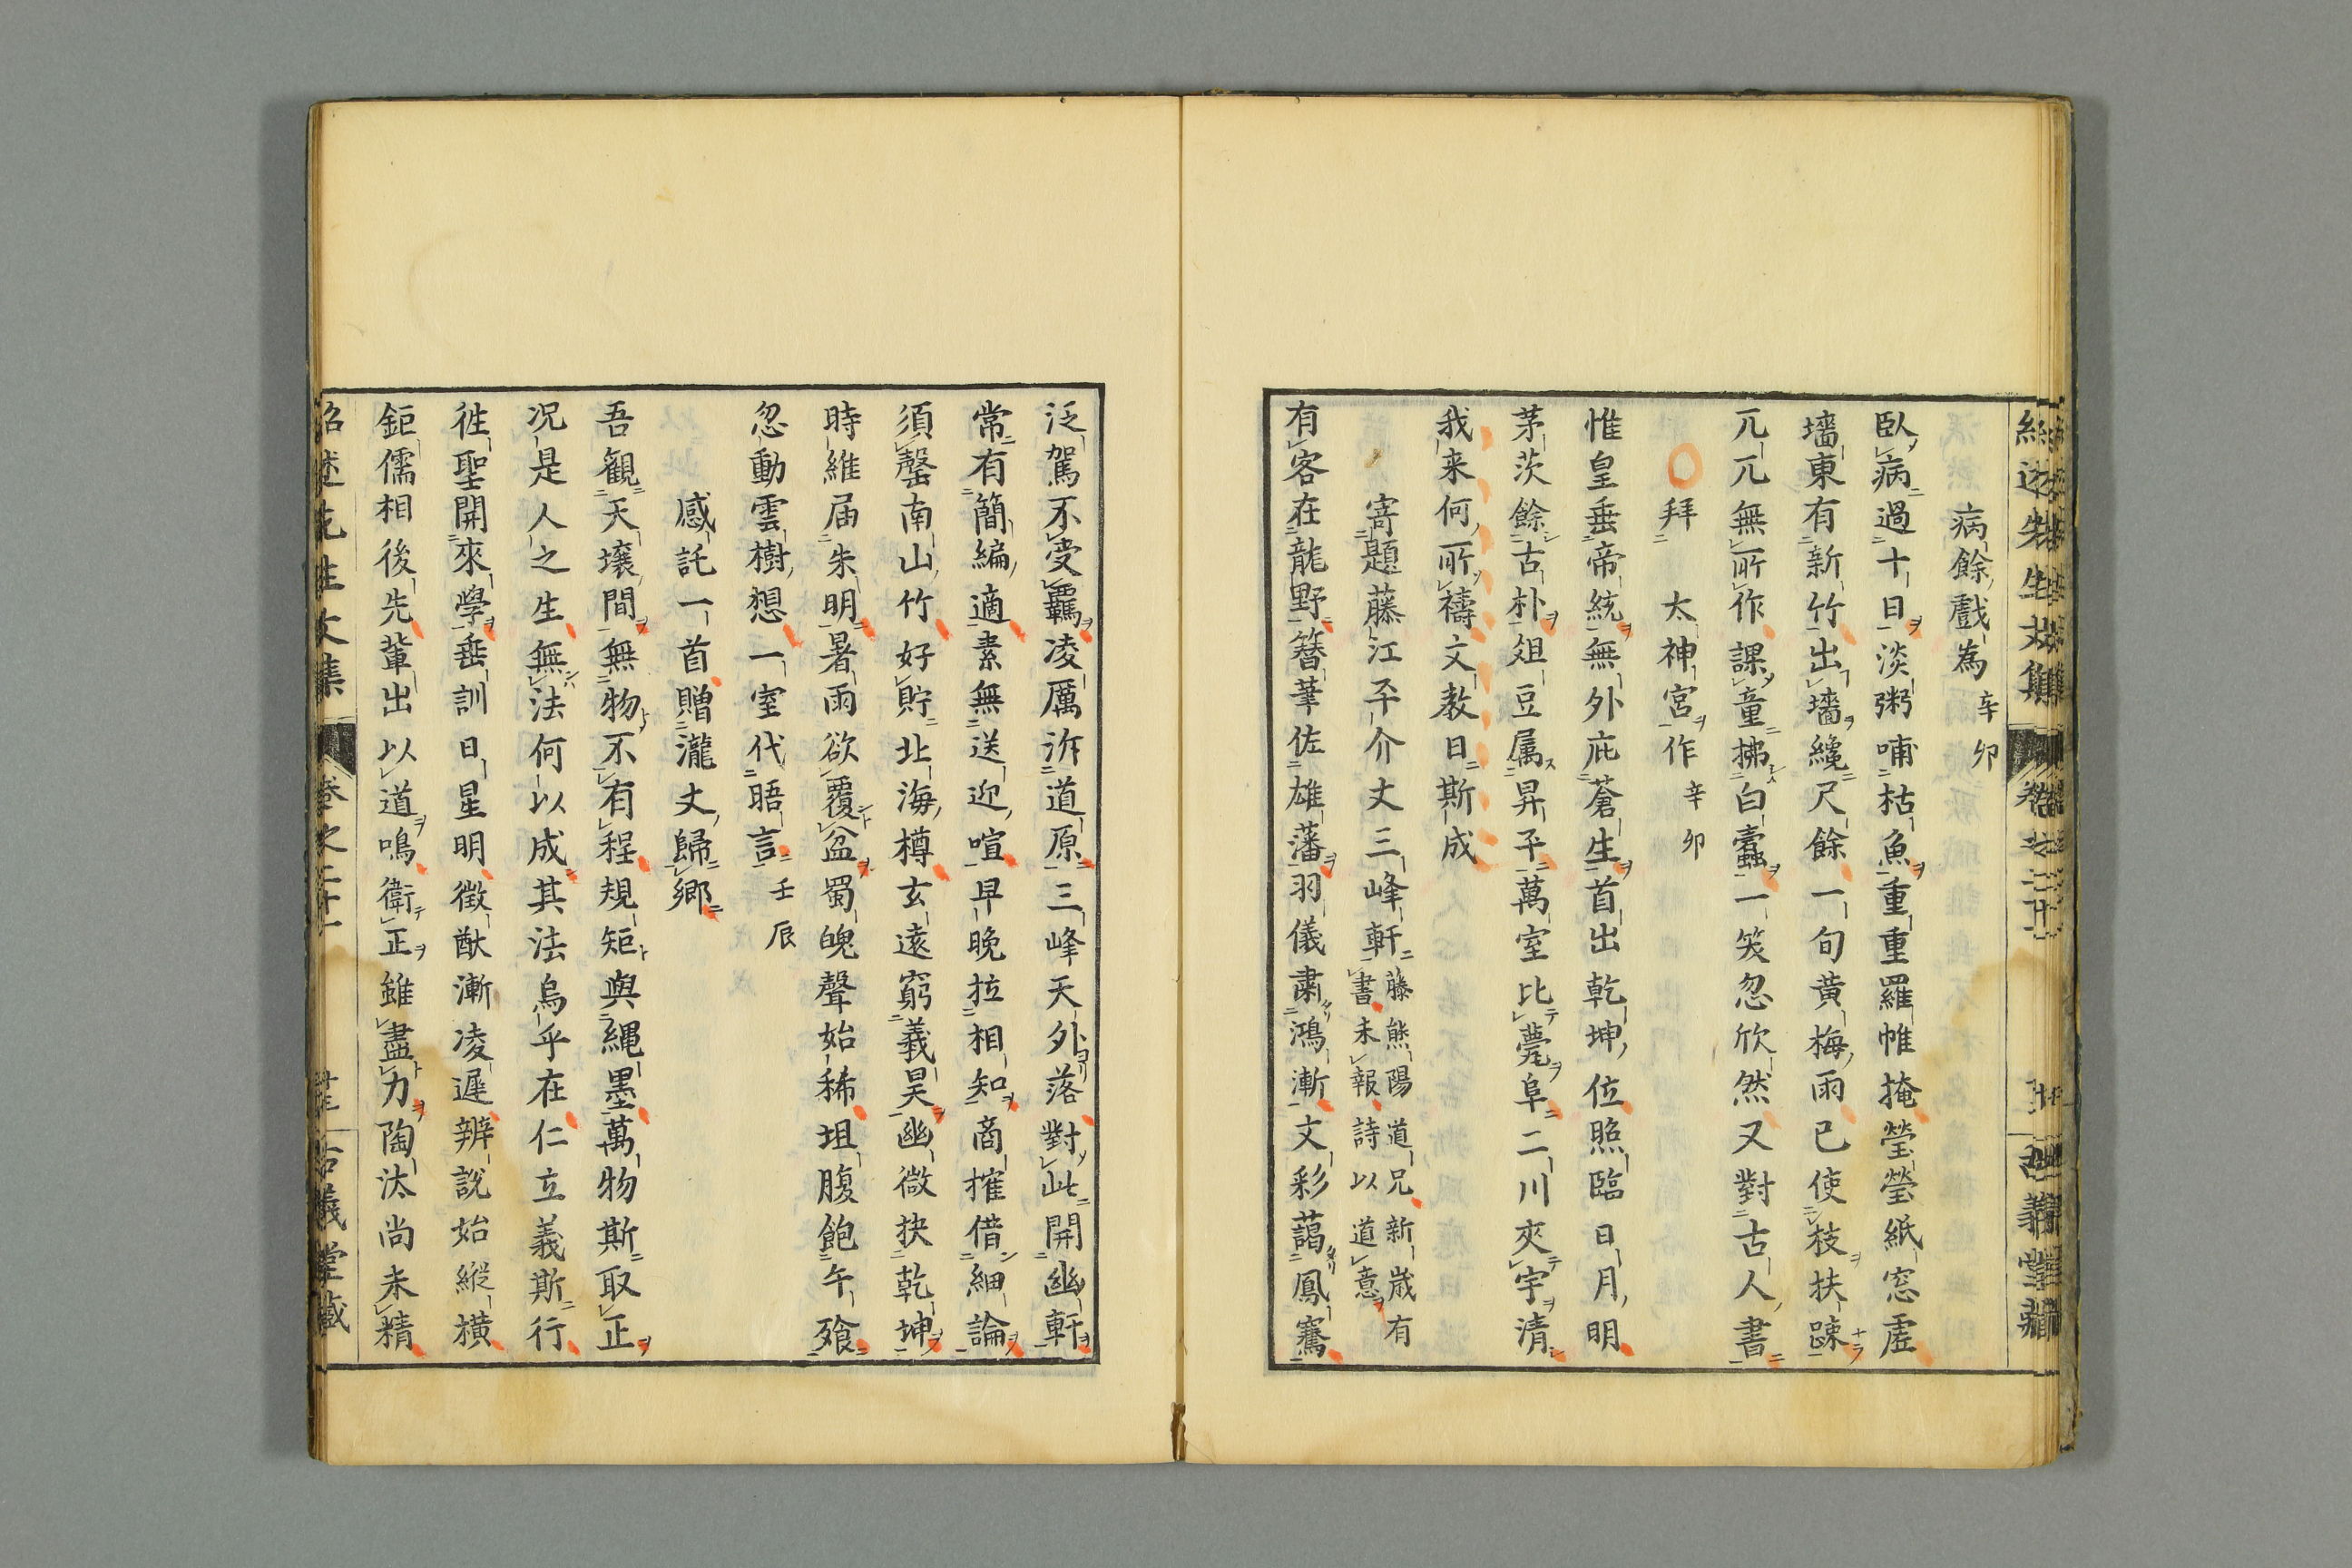 病餘戲為 辛卯
臥病過十日淡粥哺枯魚重重羅帷掩瑩瑩紙窓虚
墻東有新竹出墻纔尺餘一句黄梅雨已使枝扶踈
兀兀無所作課童拂白蠹一笑忽欣然又對古人書
拜 太神宮作 辛卯
惟皇垂帝統無外庇蒼生首出乾坤位照臨日月明
茅茨餘古朴俎豆属昇平萬室比甍阜二川夾宇清
我来何所禱文教日斯成
寄題藤江平介丈三峰軒 藤熊陽道兄新歳有
書未報詩以道意
有客在龍野簪筆佐雄藩羽儀肅鴻漸文彩藹鳳騫
泛駕不受羈凌厲泝道原三峰天外落對此開幽軒
常有簡編適素無送迎喧早晩拉相知商搉借細論
須罄南山竹好貯北海樽玄遠窮義昊幽微抉乾坤
時維届朱明暑雨欲覆盆蜀魄聲始稀坦腹飽午飱
忽動雲樹想一室代晤言 壬辰
感託一首贈瀧丈歸郷
吾観天壌間無物不有程規矩與縄墨萬物斯取正
况是人之生無法何以成其法烏乎在仁立義斯行
徃聖開來學垂訓日星明徴猷漸凌遲辨説始縱横
鉅儒相後先輩出以道鳴衛正雖盡力陶汰尚未精
紹述先生文集 卷之二十一 古義堂藏